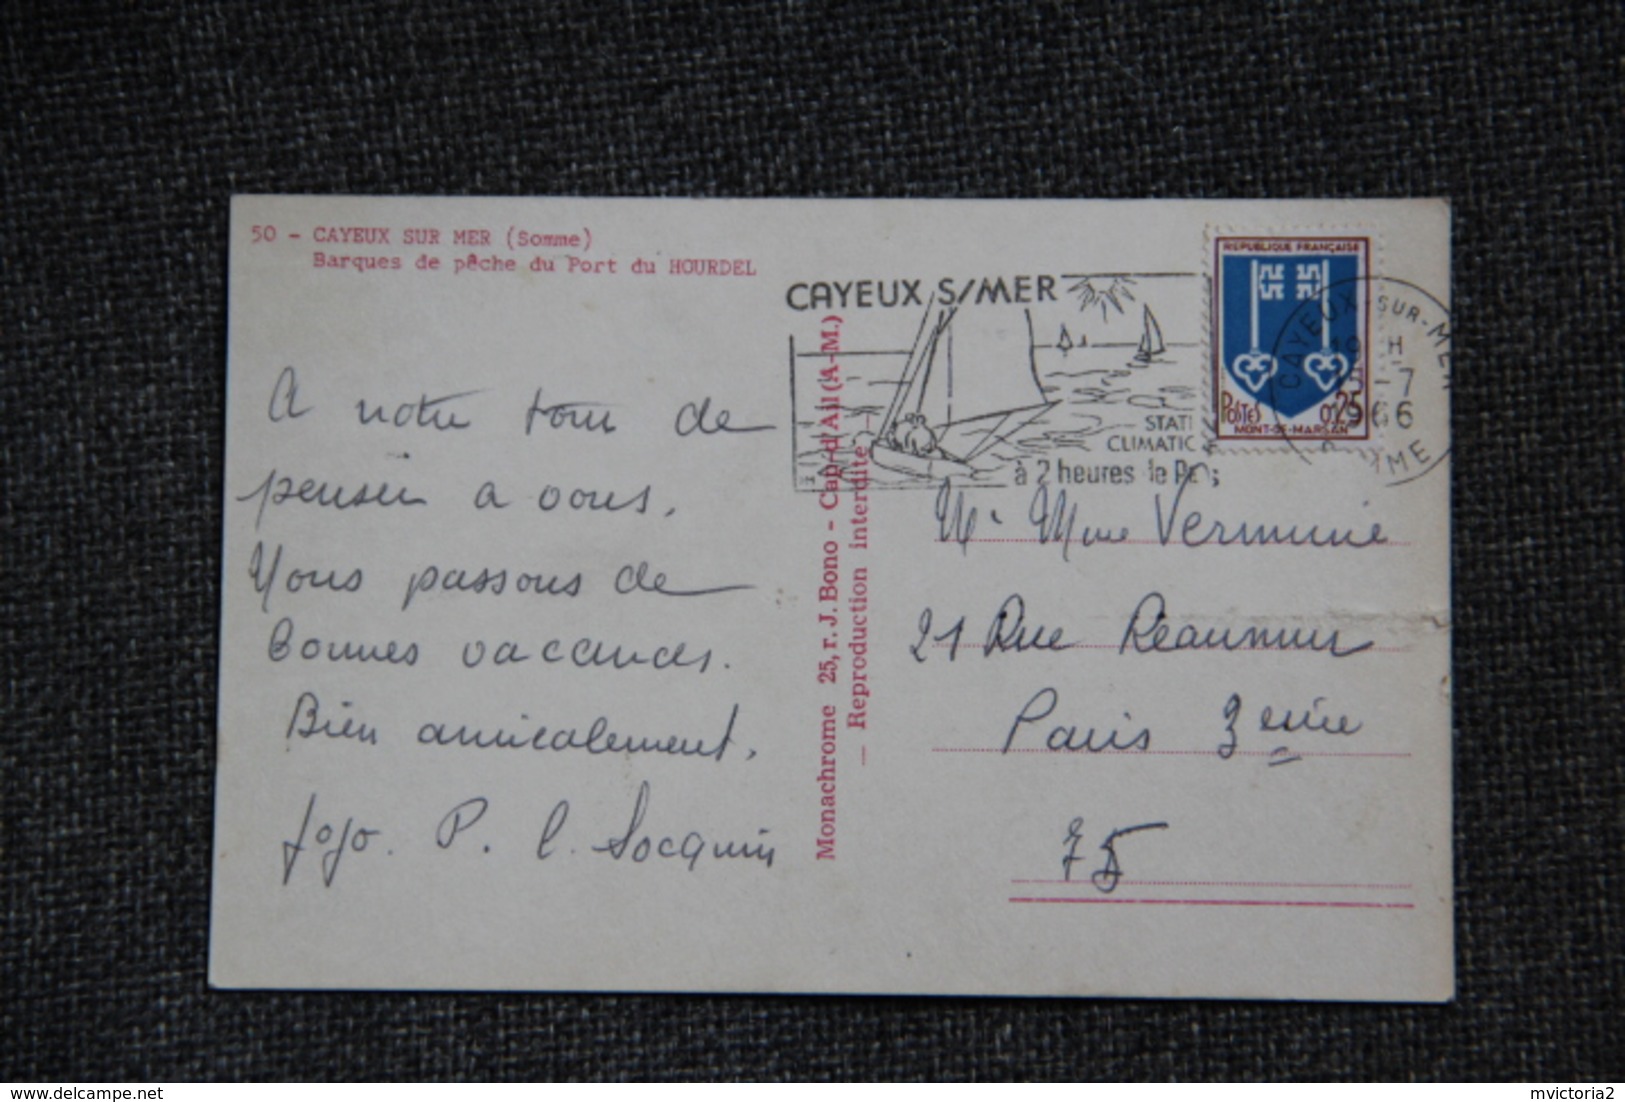 50 - CAYEUX SUR MER (Somme)
Barques de pêche du Port du HOURDEL
A notre tour de
penser a vous.
Nous passons de
Bonnes vacances.
Bien amicalement,
Jojo. P. C. Socquin
Monachrome 25, r. J. Bono - Cap-d'Ail (A-M.)
— Reproduction interdite
CAYEUX S/MER
STATI
CLIMATIC
à 2 heures de Paris
REPUBLIQUE FRANÇAISE
POSTES 0,25
MONT-DE-MARSAN
CAYEUX-SUR-MER
19 H
-7
1966
SOMME
Mr Mme Vermunie
21 Rue Réaumur
Paris 3eme
75
delcampe.net
mvictoria2